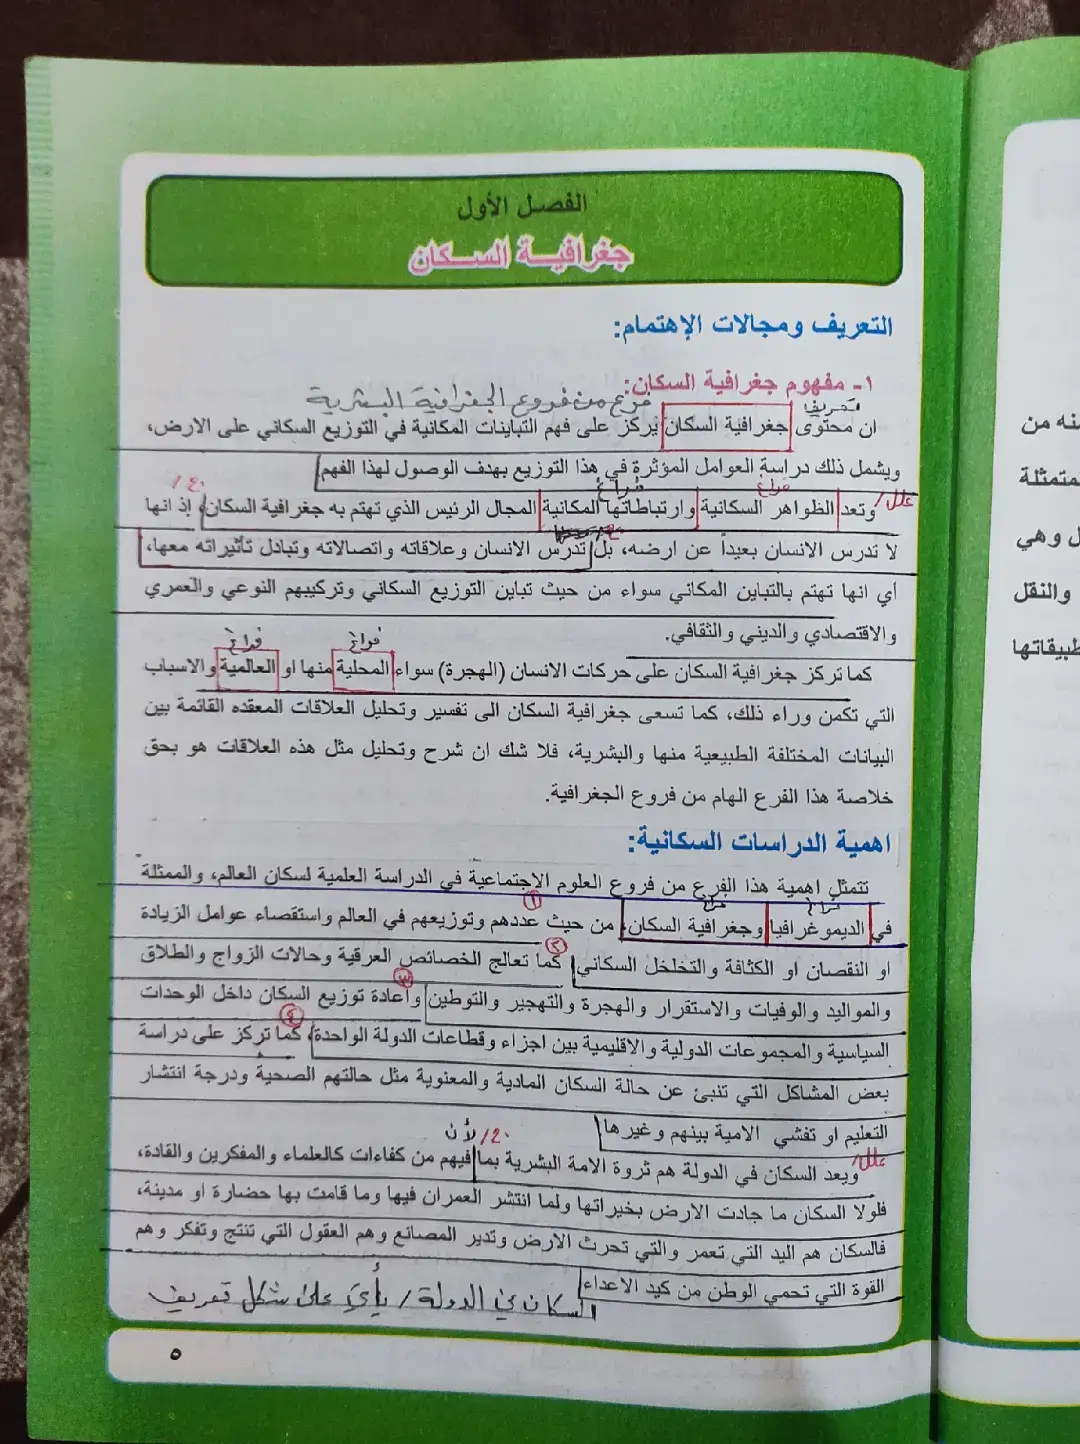 الفصل الأول
جغرافية السكان
التعريف ومجالات الإهتمام:
١- مفهوم جغرافية السكان:
فرع من فروع الجغرافية البشرية
تعريف
ان محتوى جغرافية السكان يركز على فهم التباينات المكانية في التوزيع السكاني على الارض،
ويشمل ذلك دراسة العوامل المؤثرة في هذا التوزيع بهدف الوصول لهذا الفهم.
علل/ فراغ فراغ ج/
وتعد الظواهر السكانية وارتباطاتها المكانية المجال الرئيس الذي تهتم به جغرافية السكان، إذ انها
لا تدرس الانسان بعيداً عن ارضه، بل تدرس الانسان وعلاقاته واتصالاته وتبادل تأثيراته معها،
أي انها تهتم بالتباين المكاني سواء من حيث تباين التوزيع السكاني وتركيبهم النوعي والعمري
والاقتصادي والديني والثقافي.
فراغ فراغ
كما تركز جغرافية السكان على حركات الانسان (الهجرة) سواء المحلية منها او العالمية والاسباب
التي تكمن وراء ذلك، كما تسعى جغرافية السكان الى تفسير وتحليل العلاقات المعقده القائمة بين
البيانات المختلفة الطبيعية منها والبشرية، فلا شك ان شرح وتحليل مثل هذه العلاقات هو بحق
خلاصة هذا الفرع الهام من فروع الجغرافية.
اهمية الدراسات السكانية:
تتمثل اهمية هذا الفرع من فروع العلوم الاجتماعية في الدراسة العلمية لسكان العالم، والممثلة
فراغ فراغ ١
في الديموغرافيا وجغرافية السكان، من حيث عددهم وتوزيعهم في العالم واستقصاء عوامل الزيادة
٢
او النقصان او الكثافة والتخلخل السكاني، كما تعالج الخصائص العرقية وحالات الزواج والطلاق
٣
والمواليد والوفيات والاستقرار والهجرة والتهجير والتوطين واعادة توزيع السكان داخل الوحدات
٤
السياسية والمجموعات الدولية والاقليمية بين اجزاء وقطاعات الدولة الواحدة، كما تركز على دراسة
بعض المشاكل التي تنبئ عن حالة السكان المادية والمعنوية مثل حالتهم الصحية ودرجة انتشار
التعليم او تفشي الامية بينهم وغيرها
علل/ ج/ لأن
ويعد السكان في الدولة هم ثروة الامة البشرية بما فيهم من كفاءات كالعلماء والمفكرين والقادة،
فلولا السكان ما جادت الارض بخيراتها ولما انتشر العمران فيها وما قامت بها حضارة او مدينة،
فالسكان هم اليد التي تعمر والتي تحرث الارض وتدير المصانع وهم العقول التي تنتج وتفكر وهم
القوة التي تحمي الوطن من كيد الاعداء
السكان في الدولة / يأتي على شكل تعريف
٥
نه من
متمثلة
ل وهي
والنقل
طبيقاتها